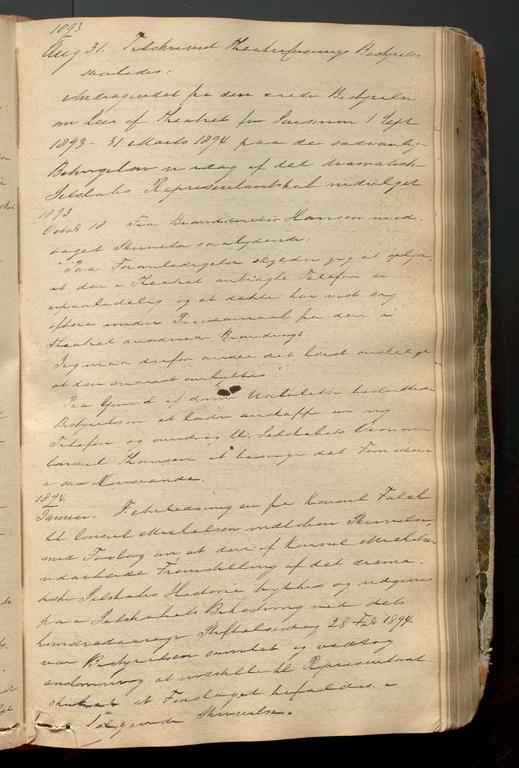 1893
Aug 31. Tilskrived Theaterforenings Bestyrelse
saaledes:
Andragendet fra den ærede Bestyrelse
om Leie af Theatret for Saisonen 1 Sept
1893 - 31 Marts 1894 paa de sædvanlige
Betingelser er idag af det dramatiske
Selskabs Repræsentantskab indvilget
1893
Octob 18 Fra Branddirektør Hansen mod-
taget Skrivelse saalydende:
"Paa Foranledigelse skyder jeg at oplyse
at den i Theatret anbragte Telefon er
upaalidelig og at dette har vist sig
oftere under Prøvesignal fra den i
Theatret anordnede Brandvagt.
Jeg maa derfor ansee det høist ønskeligt
at den snarest ombyttes"
Paa Grund af denne Udtalelse besluttede
Bestyrelsen at lade anskaffe en ny
Telefon og anmodog til Selskabets Økonom
Consul Thomsen at besørge det Fornødne
i saa Henseende.
1894
Januar. I Anledning en fra Konsul Falck
til Consul Michelsen indkommen Skrivelse,
med Forslag om, at den af Konsul Michelsen
udarbeidede Fremstilling af det drama-
tiske Selskabs Historie trykkes og udgives
paa Selskabets Bekostning ved dets
hundredeaarige Stiftelsesdag 28 Feb 1894
var Bestyrelsen samlet og vedtog
enstemmig at indstille til Repræsentant-
skabet at Forslaget bifaldes i
følgende Skrivelse.